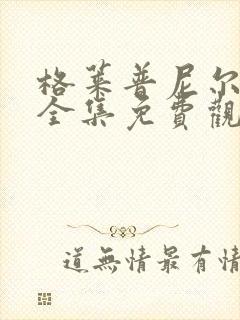 格莱普尼尔
全集免費觀
道無情最有情